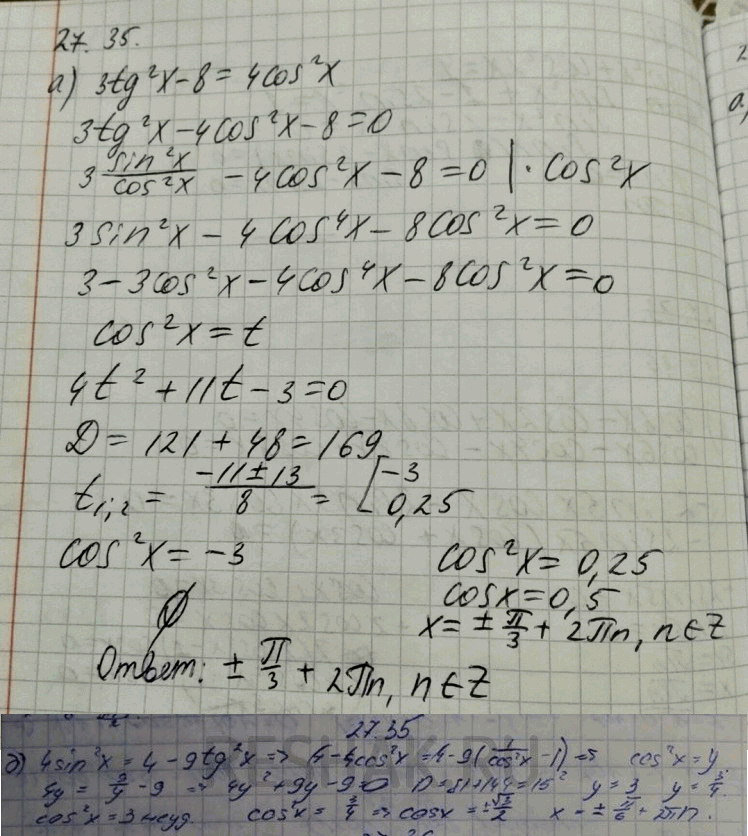 27. 35.
а) 3tg²x - 8 = 4cos²x
3tg²x - 4cos²x - 8 = 0
3 sin²x/cos²x - 4cos²x - 8 = 0 | · cos²x
3 sin²x - 4 cos⁴x - 8cos²x = 0
3 - 3cos²x - 4cos⁴x - 8cos²x = 0
cos²x = t
4t² + 11t - 3 = 0
D = 121 + 48 = 169
t₁,₂ = (-11 ± 13)/8 = [ -3 0,25
cos²x = -3
∅
cos²x = 0,25
cosx = 0,5
x = ± π/3 + 2πn, n ∈ Z
Ответ: ± π/3 + 2πn, n ∈ Z
27.35
б) 4sin²x = 4 - 9tg²x => 4 - 4cos²x = 4 - 9(1/cos²x - 1) => cos²x = y
4y = 9/y - 9 => 4y² + 9y - 9 = 0 D = 81 + 144 = 15² y = 3 y = 3/4
cos²x = 3 cos²x = 3/4 => cosx = ±√3/2 x = ± π/6 + 2πn.